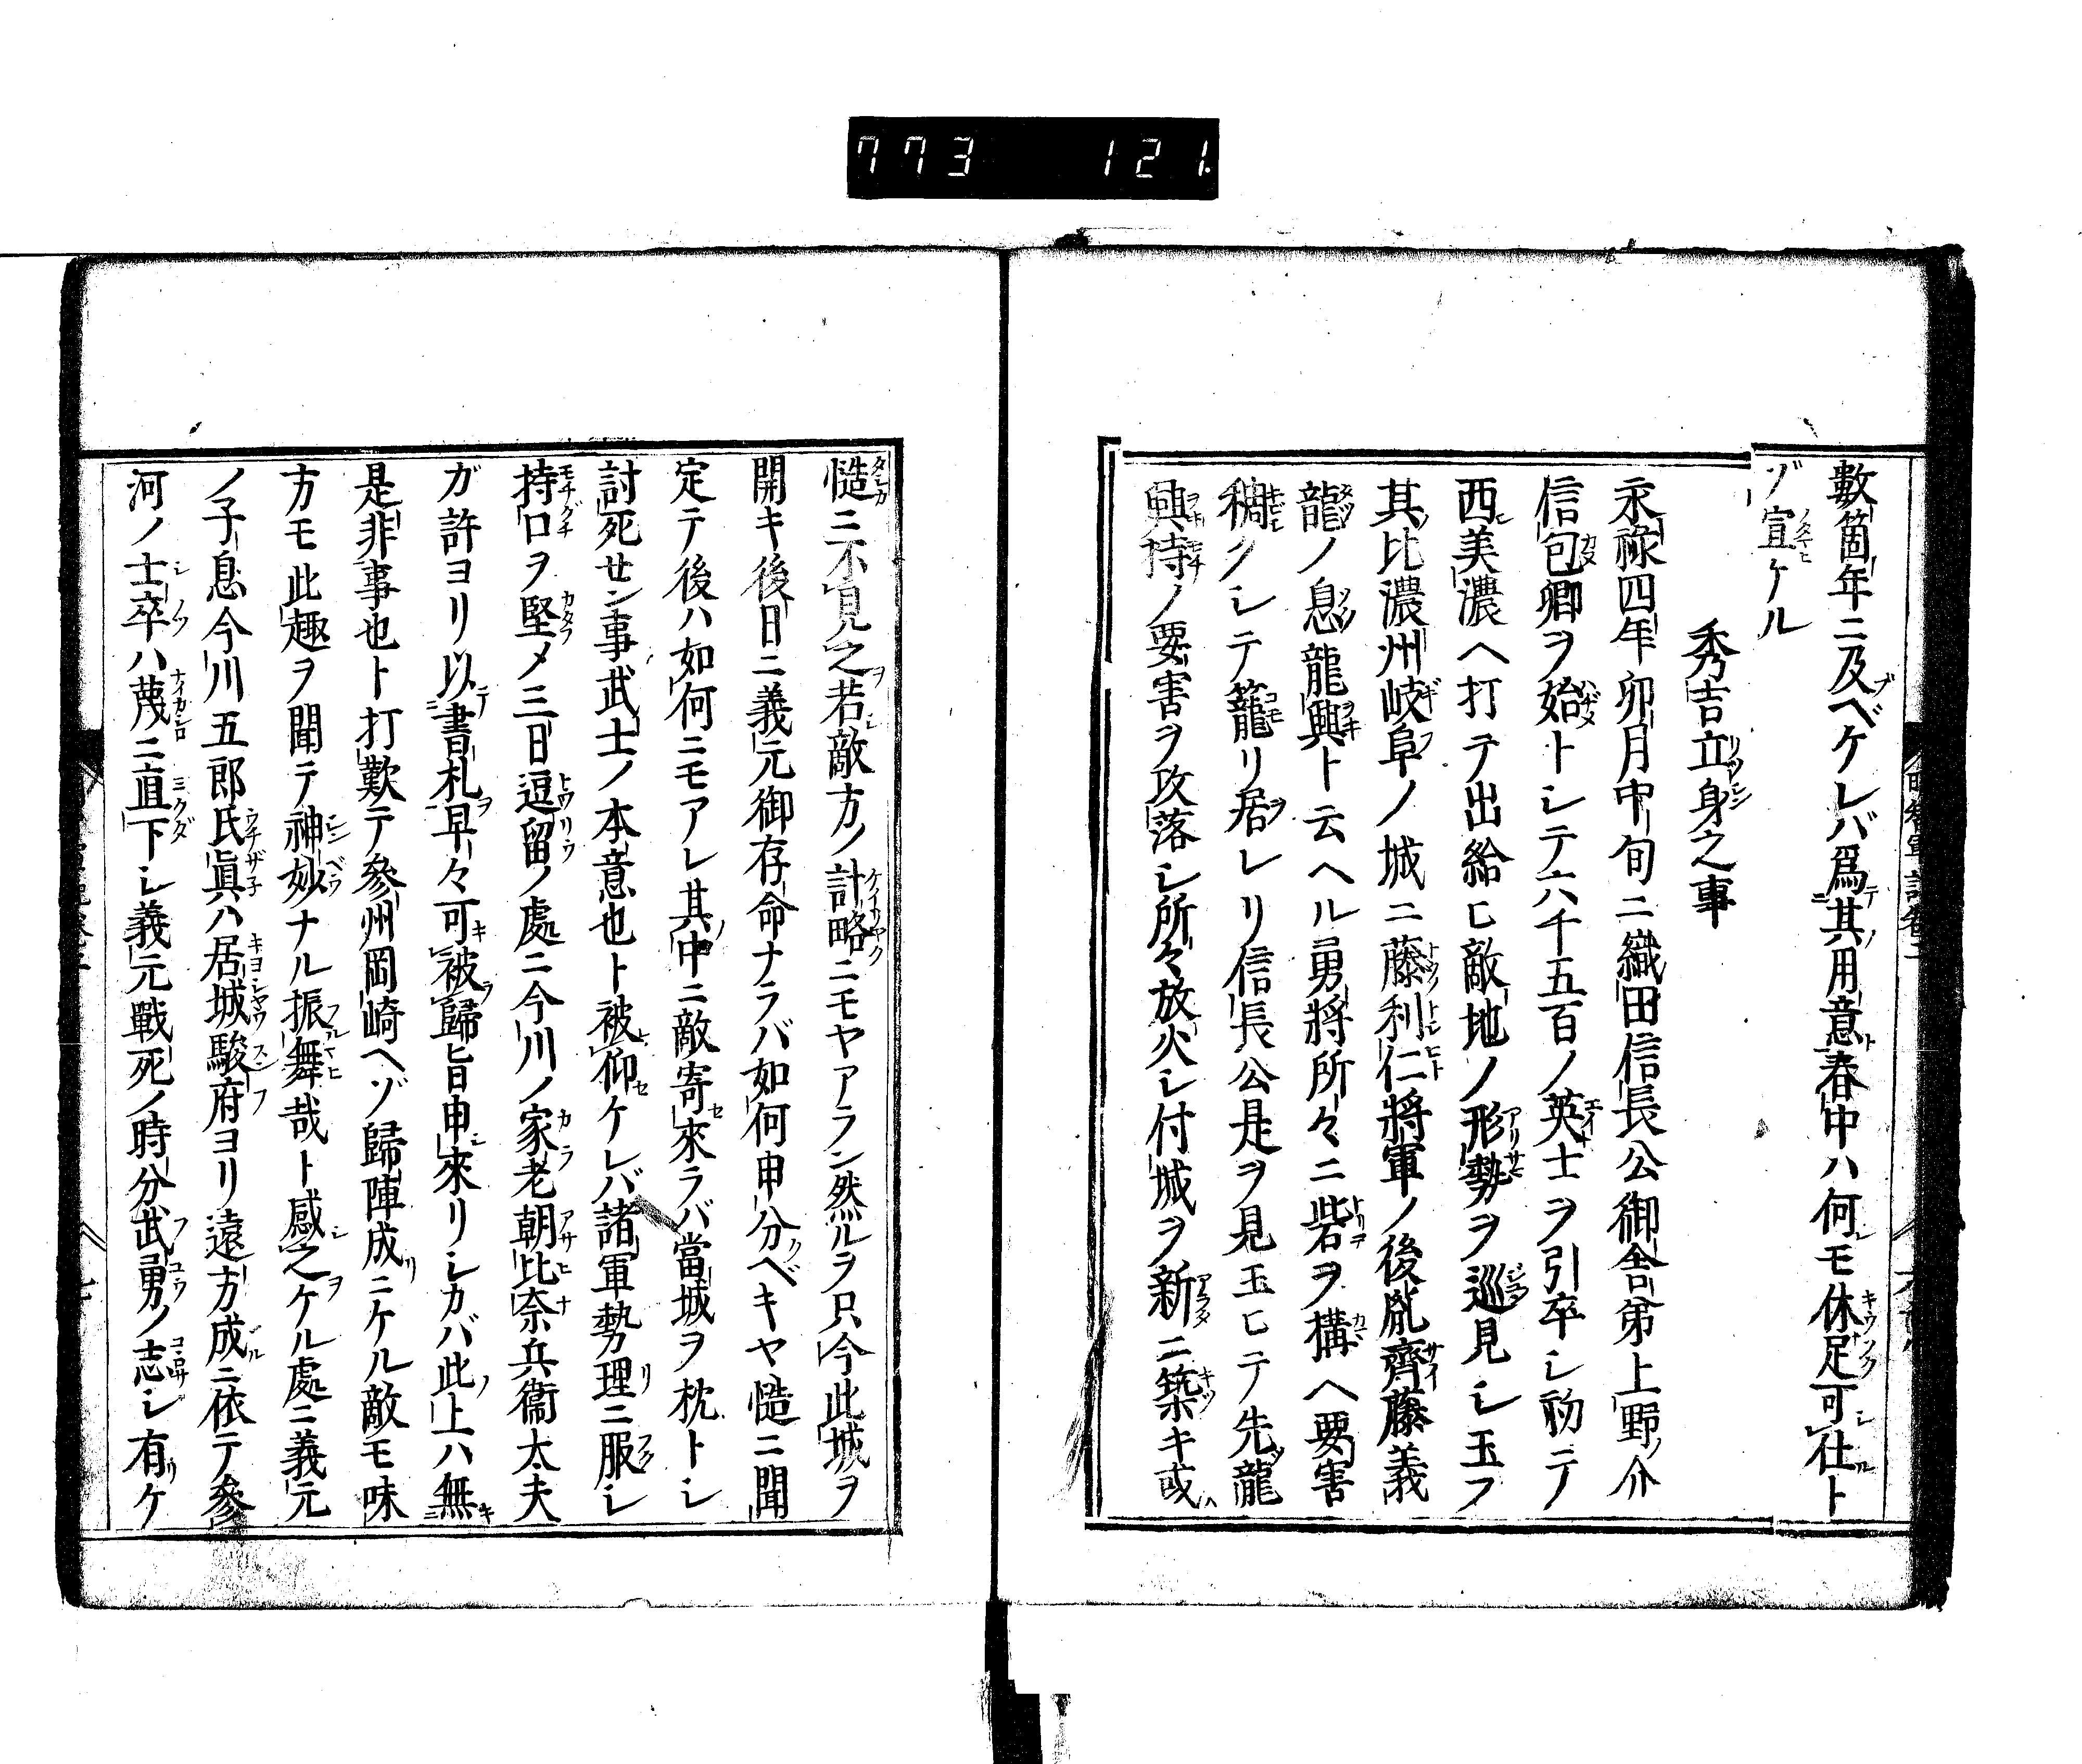 773 121.
數箇年ニ及ベケレバ爲其用意春中ハ何モ休足可仕ト
ゾ宣ケル
秀吉立身之事
永祿四年卯月中旬ニ織田信長公御舎弟上野ノ介
信包卿ヲ始トシテ六千五百ノ英士ヲ引卒シ初テ
西美濃ヘ打テ出給ヒ敵地ノ形勢ヲ巡見シ玉フ
其比濃州岐阜ノ城ニ藤利仁將軍ノ後胤齊藤義
龍ノ息龍興ト云ヘル勇將所々ニ砦ヲ構ヘ要害
稠クシテ籠リ居レリ信長公是ヲ見玉ヒテ先龍
興持ノ要害ヲ攻落シ所々放火シ付城ヲ新ニ築キ或
慥ニ不見之若敵方ノ計略ニモヤアラン然ルヲ只今此城ヲ
開キ後日ニ義元御存命ナラバ如何申分ベキヤ慥ニ聞
定テ後ハ如何ニモアレ其中ニ敵寄來ラバ當城ヲ枕トシ
討死せン事武士ノ本意也ト被仰ケレバ諸軍勢理ニ服シ
持口ヲ堅メ三日逗留ノ處ニ今川ノ家老朝比奈兵衞太夫
ガ許ヨリ以書札早々可被歸旨申來リシカバ此上ハ無
是非事也ト打歎テ參州岡崎ヘゾ歸陣成ニケル敵モ味
方モ此趣ヲ聞テ神妙ナル振舞哉ト感之ケル處ニ義元
ノ子息今川五郎氏眞ハ居城駿府ヨリ遠方成ニ依テ參
河ノ士卒ハ蔑ニ直下シ義元戰死ノ時分武勇ノ志シ有ケ